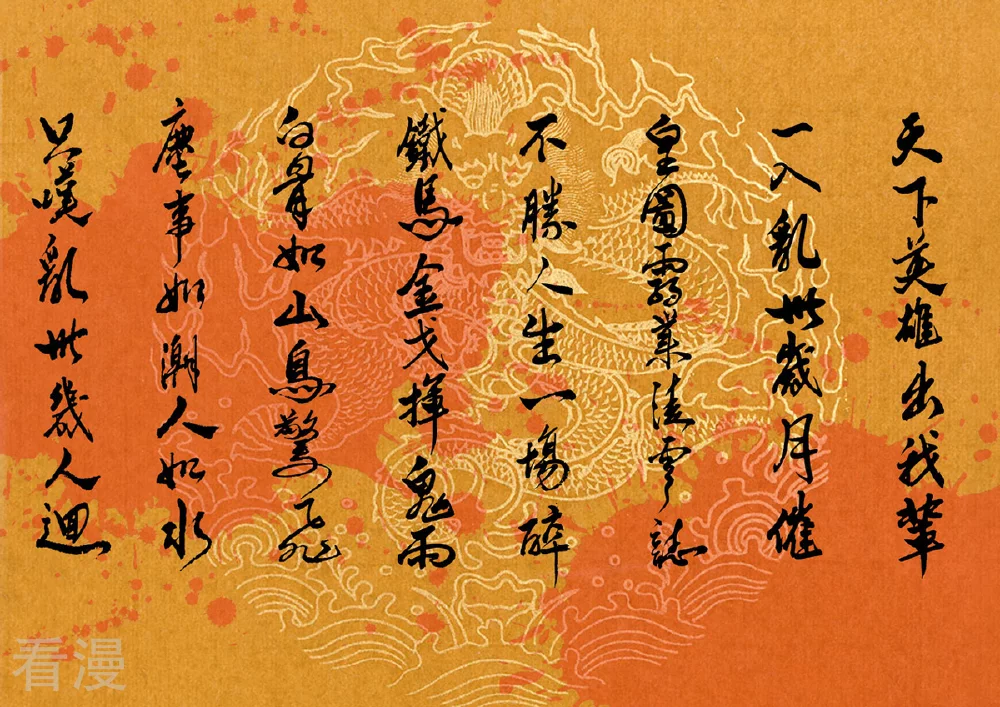 天下英雄出我輩
一入亂世歲月催
皇圖霸業淡雲誌
不勝人生一場醉
鐵馬金戈揮鬼雨
白骨如山鳥驚飛
塵事如潮人如水
只嘆亂世幾人迴
看漫